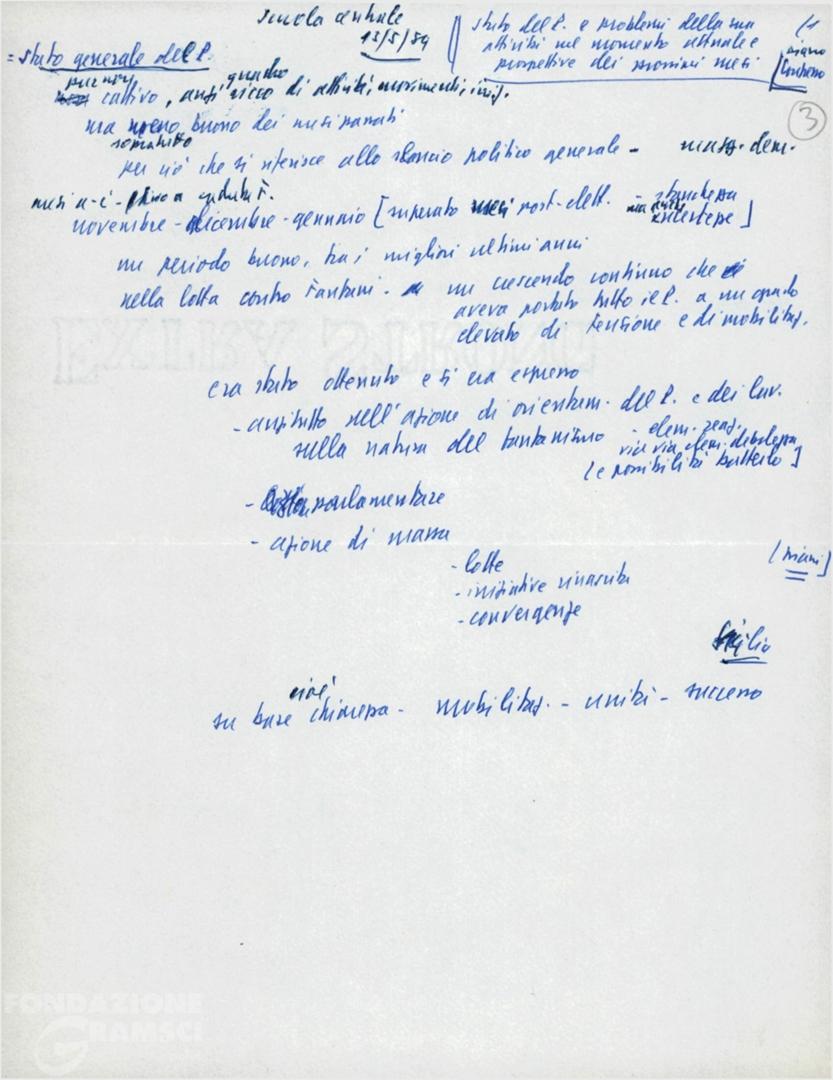 Scuola centrale
13/5/59
stato del P. e problemi della sua
attività nel momento attuale e
prospettive dei prossimi mesi
(1
3
= stato generale del P.
pur non quadro
cattivo, anzi ricco di attività, movimenti, iniz.
ma meno buono dei mesi passati
soprattutto
per ciò che si riferisce allo slancio politico generale - mass. dem.
mesi a-c- fino a caduta F.
novembre - dicembre - gennaio [superato mesi post-elett. - stanchezza
ma anche incertezze]
un periodo buono, tra i migliori ultimi anni
nella lotta contro Fanfani. un crescendo continuo che
aveva portato tutto il P. a un grado
elevato di tensione e di mobilitaz.
EXTRA STRONG
era stato ottenuto e si era espresso
- anzitutto nell'azione di orientam. del P. e dei lav.
sulla natura del fanfanismo - elem. reaz.
via via elem. debolezza
[e possibilità batterlo]
- parlamentare
- azione di massa
- lotte
- iniziative
- convergenze
Sicilia
cioè
su base chiarezza - mobilitaz. - unità - successo
FONDAZIONE
GRAMSCI